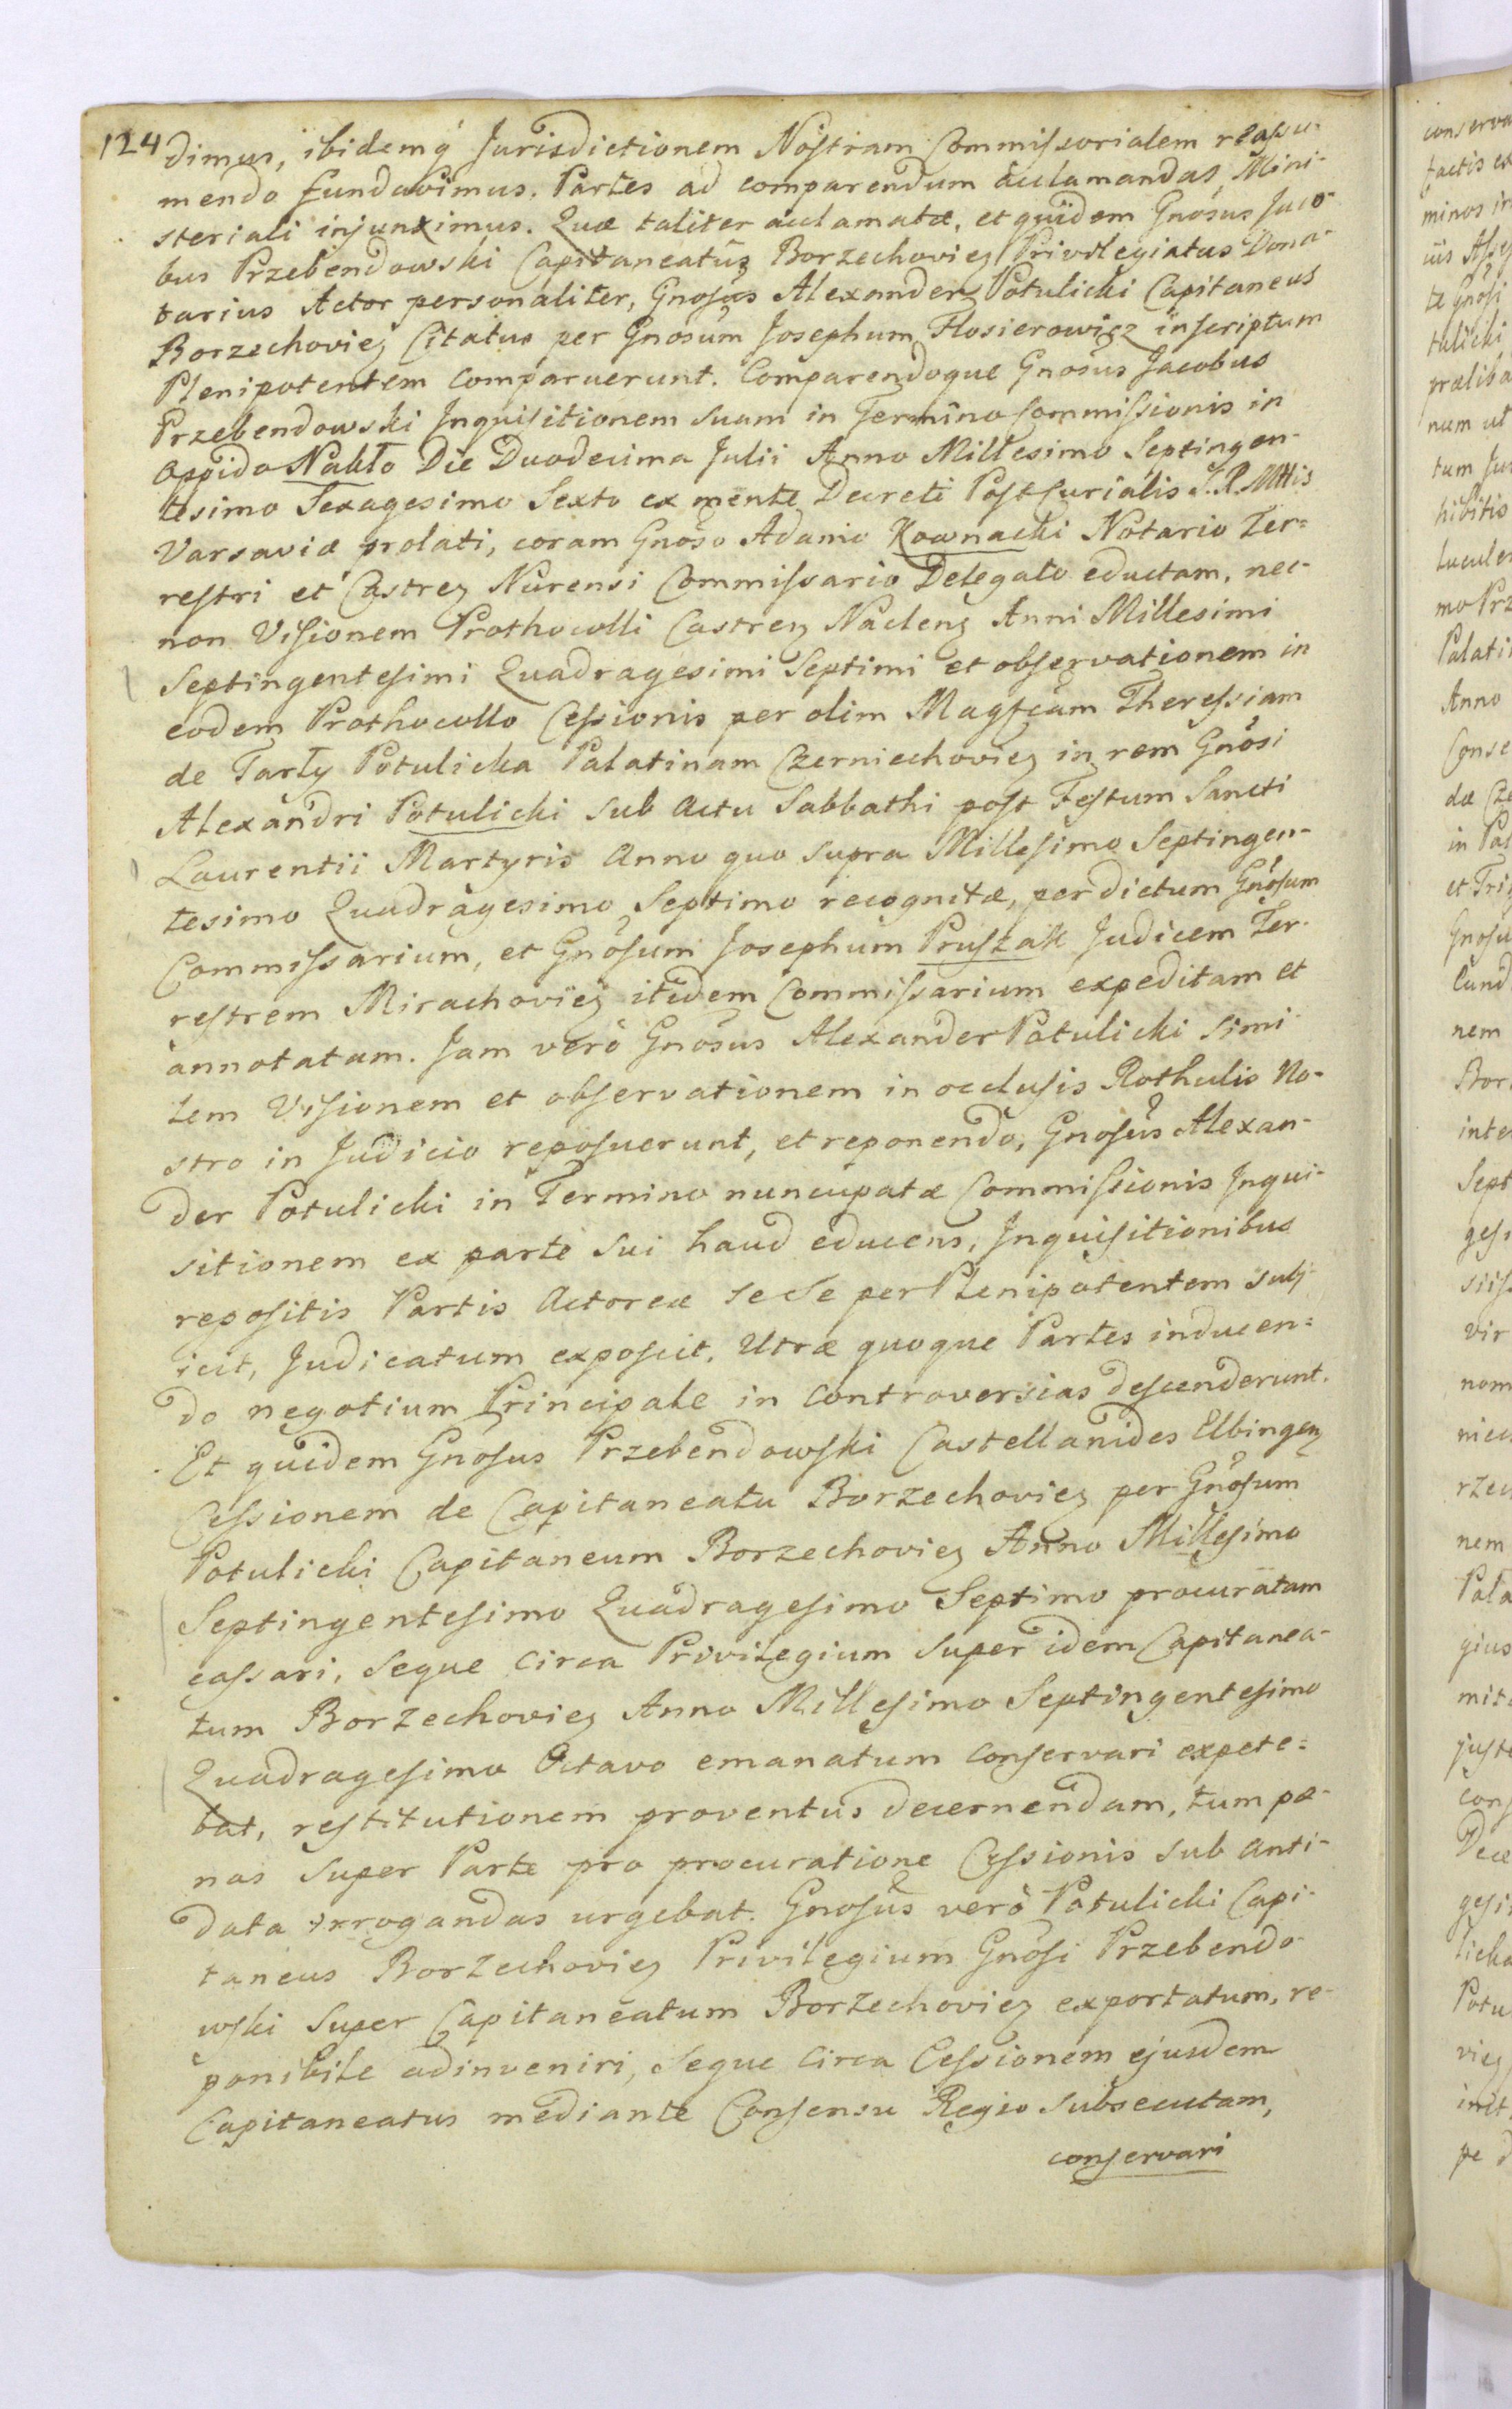 124
dimus, ibidemq́ Jurisdictionem Nostram Commissorialem reassu-
mendo fundavimus. Partes ad comparendum acclamandas, Mini-
steriali injunximus. Quæ taliter acclamatæ, et quidem Gnosus Jaco-
bus Przebendowski Capitaneatus Borzechoviēn Privilegiatus Dona-
tarius Actor personaliter, Gnosus Alexander Potulicki Capitaneus
Borzechovien Citatus per Gnosum Josephum Flosierowicz inscriptum
Plenipotentem comparuerunt. Comparendoque Gnosus Jacobus
Przebendowski Inquisitionem suam in Termino Commissionis in
Oppido Nakło Die Duodecima Julii Anno Millesimo Septingen-
tesimo Sexagesimo Sexto ex mente Decreti Post Curialis S. R. Mttis
Varsaviæ prolati, coram Gnoso Adamo Kownacki Notario Ter=
restri et Castren Nurensi Commissario Delegato eductam, nec-
non Visionem Prothocolli Castren Naclen Anni Millesimi
Septingentesimi Quadragesimi Septimi et observationem in
eodem Prothocollo Cessionis per olim Magfcam Theressiam
de Tarły Potulicka Palatinam Czerniechovien in rem Gnosi
Alexandri Potulicki sub Actu Sabbathi post Festum Sancti
Laurentii Martyris Anno quo supra Millesimo Septingen-
tesimo Quadragesimo Septimo recognitæ, per dictum Gnosum
Commissarium, et Gnosum Josephum Pruszak Judicem Ter-
restrem Mirachovien itidem Commissarium expeditam et
annotatam. Jam verò Gnosus Alexander Potulicki simi-
lem Visionem et observationem in occlusis Rothulis No-
stro in Judicio reposuerunt, et reponendo, Gnosus Alexan-
der Potulicki in Termino nuncupatæ Commissionis Inqui-
sitionem ex parte sui haud educens, Inquisitionibus
repositis Partis Actoreæ sese per Plenipotentem subj-
icit, Judicatum exposcit. Utræ quoque Partes inducen=
do negotium Principale in controversias descenderunt.
Et quidem Gnosus Przebendowski Castellanides Elbingen
Cessionem de Capitaneatu Borzechovien per Gnosum
Potulicki Capitaneum Borzechovien Anno Millesimo
Septingentesimo Quadragesimo Septimo procuratam
cassari, seque circa Privilegium super idem Capitanea-
tum Borzechovien Anno Millesimo Septingentesimo
Quadragesimo Octavo emanatum conservari expete=
bat, restitutionem proventus decernendam, tum pæ-
nas super Parte pro procuratione Cessionis sub anti-
data irrogandas urgebat. Gnosus verò Potulicki Capi-
taneus Borzechovien Privilegium Gnosi Przebendo-
wski super Capitaneatum Borzechovien exportatum, re-
ponibile adinveniri, seque circa Cessionem ejusdem
Capitaneatus mediante Consensu Regio subsecutam,
conservari